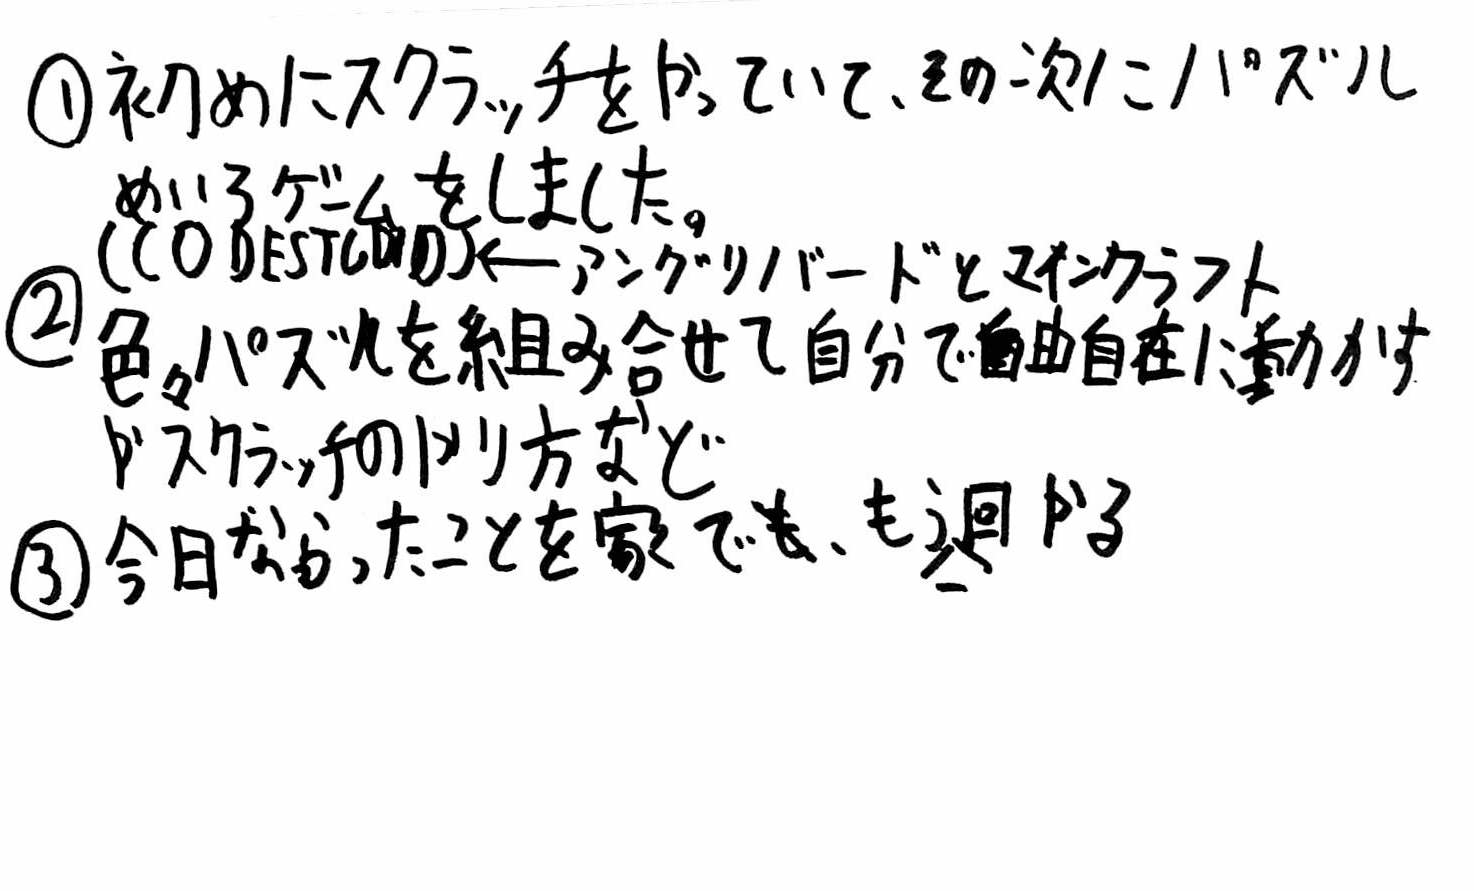 ①初めにスクラッチをやっていて、その次にパズル
めいろゲームをしました。
(CODESTUDIO)←アングリバードとマインクラフト
②色々パズルを組み合せて自分で自由自在に動かす
やスクラッチのやり方など
③今日なかったことを家でも、もう一回やる